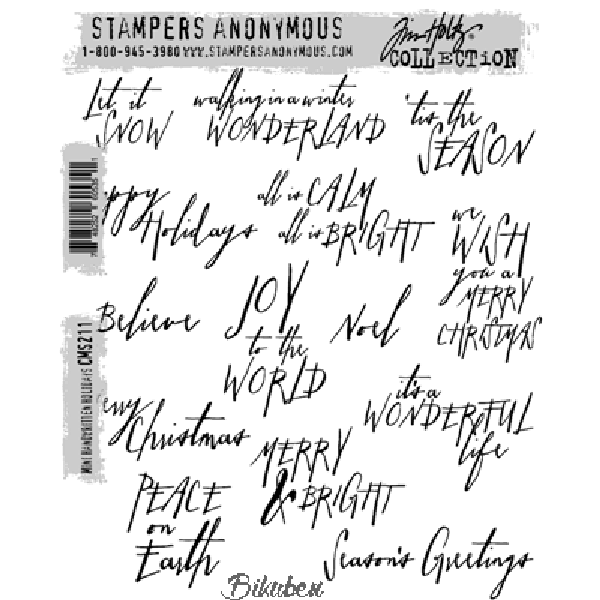 STAMPERS ANONYMOUS
1-800-945-3980 WWW.STAMPERSANONYMOUS.COM
Tim Holtz
COLLECTION
Let it
SNOW
walking in a winter
WONDERLAND
'tis the
SEASON
ppy
Holidays
all is CALM
all is BRIGHT
we
WISH
you a
MERRY
CHRISTMAS
Believe
JOY
to the
WORLD
Noel
it's a
WONDERFUL
life
erry
Christmas
MERRY
& BRIGHT
PEACE
on
Earth
Season's Greetings
MINI HANDWRITTEN HOLIDAYS CMS211
Bikuben